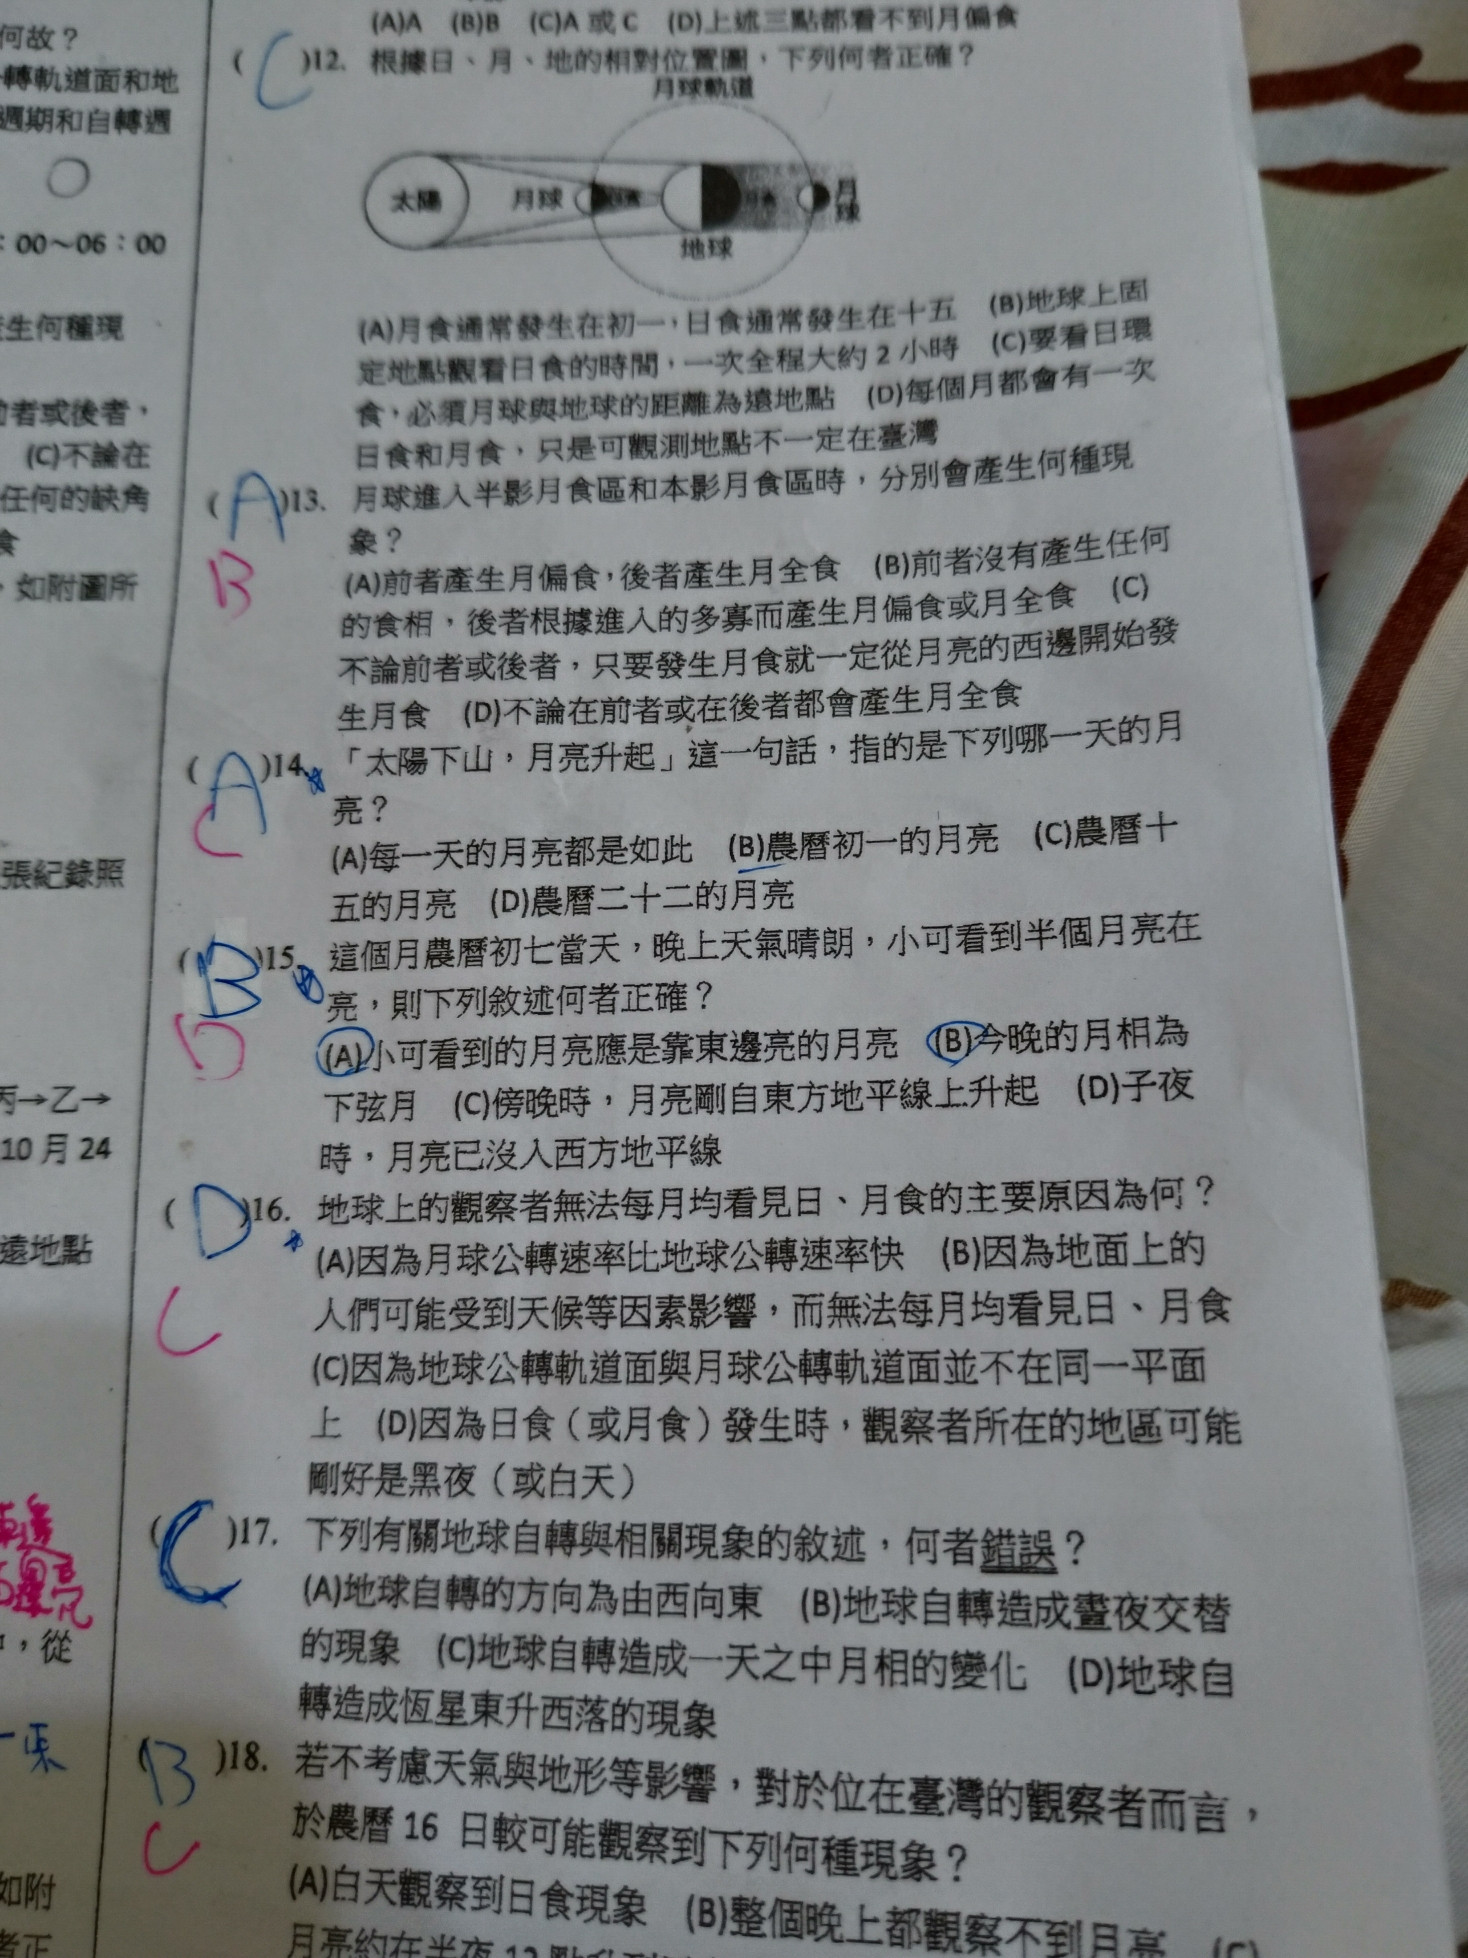 何故？
轉軌道面和地
週期和自轉週
：00～06：00
生何種現
者或後者，
(C)不論在
任何的缺角
食
，如附圖所
張紀錄照
丙→乙→
10月24
遠地點
，從
如附
者正
(A)A (B)B (C)A 或 C (D)上述三點都看不到月偏食
( C )12. 根據日、月、地的相對位置圖，下列何者正確？
月球軌道
太陽
月球
地球
月球
(A)月食通常發生在初一，日食通常發生在十五 (B)地球上固
定地點觀看日食的時間，一次全程大約 2 小時 (C)要看日環
食，必須月球與地球的距離為遠地點 (D)每個月都會有一次
日食和月食，只是可觀測地點不一定在臺灣
( A )13. 月球進入半影月食區和本影月食區時，分別會產生何種現
象？
B
(A)前者產生月偏食，後者產生月全食 (B)前者沒有產生任何
的食相，後者根據進入的多寡而產生月偏食或月全食 (C)
不論前者或後者，只要發生月食就一定從月亮的西邊開始發
生月食 (D)不論在前者或在後者都會產生月全食
( A )14. 「太陽下山，月亮升起」這一句話，指的是下列哪一天的月
亮？
C
(A)每一天的月亮都是如此 (B)農曆初一的月亮 (C)農曆十
五的月亮 (D)農曆二十二的月亮
( B )15. 這個月農曆初七當天，晚上天氣晴朗，小可看到半個月亮在
亮，則下列敘述何者正確？
D
(A)小可看到的月亮應是靠東邊亮的月亮 (B)今晚的月相為
下弦月 (C)傍晚時，月亮剛自東方地平線上升起 (D)子夜
時，月亮已沒入西方地平線
( D )16. 地球上的觀察者無法每月均看見日、月食的主要原因為何？
(A)因為月球公轉速率比地球公轉速率快 (B)因為地面上的
C
人們可能受到天候等因素影響，而無法每月均看見日、月食
(C)因為地球公轉軌道面與月球公轉軌道面並不在同一平面
上 (D)因為日食（或月食）發生時，觀察者所在的地區可能
剛好是黑夜（或白天）
( C )17. 下列有關地球自轉與相關現象的敘述，何者錯誤？
(A)地球自轉的方向為由西向東 (B)地球自轉造成晝夜交替
的現象 (C)地球自轉造成一天之中月相的變化 (D)地球自
轉造成恆星東升西落的現象
( B )18. 若不考慮天氣與地形等影響，對於位在臺灣的觀察者而言，
於農曆 16 日較可能觀察到下列何種現象？
C
(A)白天觀察到日食現象 (B)整個晚上都觀察不到月亮 (C)
月亮約在半夜 12 點